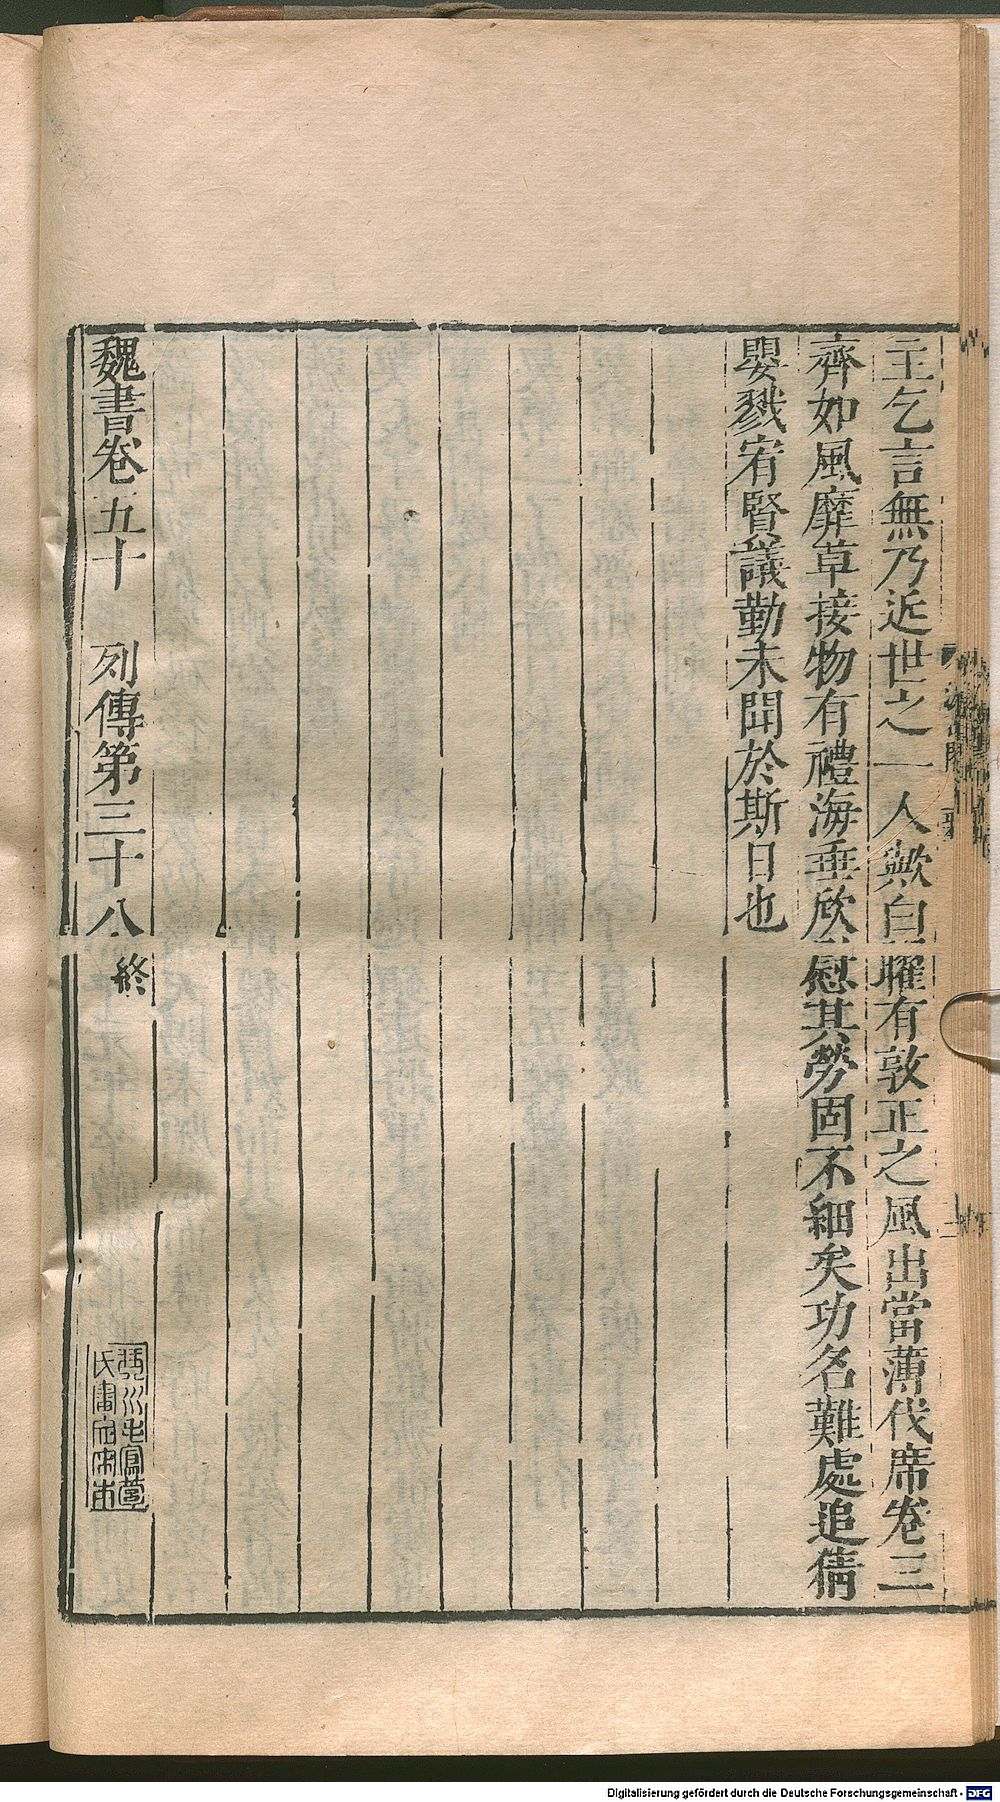 主乞言無乃近世之一人歟白曜有敦正之風出當薄伐席卷三
齊如風靡草接物有禮海垂欣慰其勞固不細矣功名難處追猜
嬰戮宥賢議勤未聞於斯日也
魏書卷五十 列傳第三十八 終
Digitalisierung gefördert durch die Deutsche Forschungsgemeinschaft - DFG